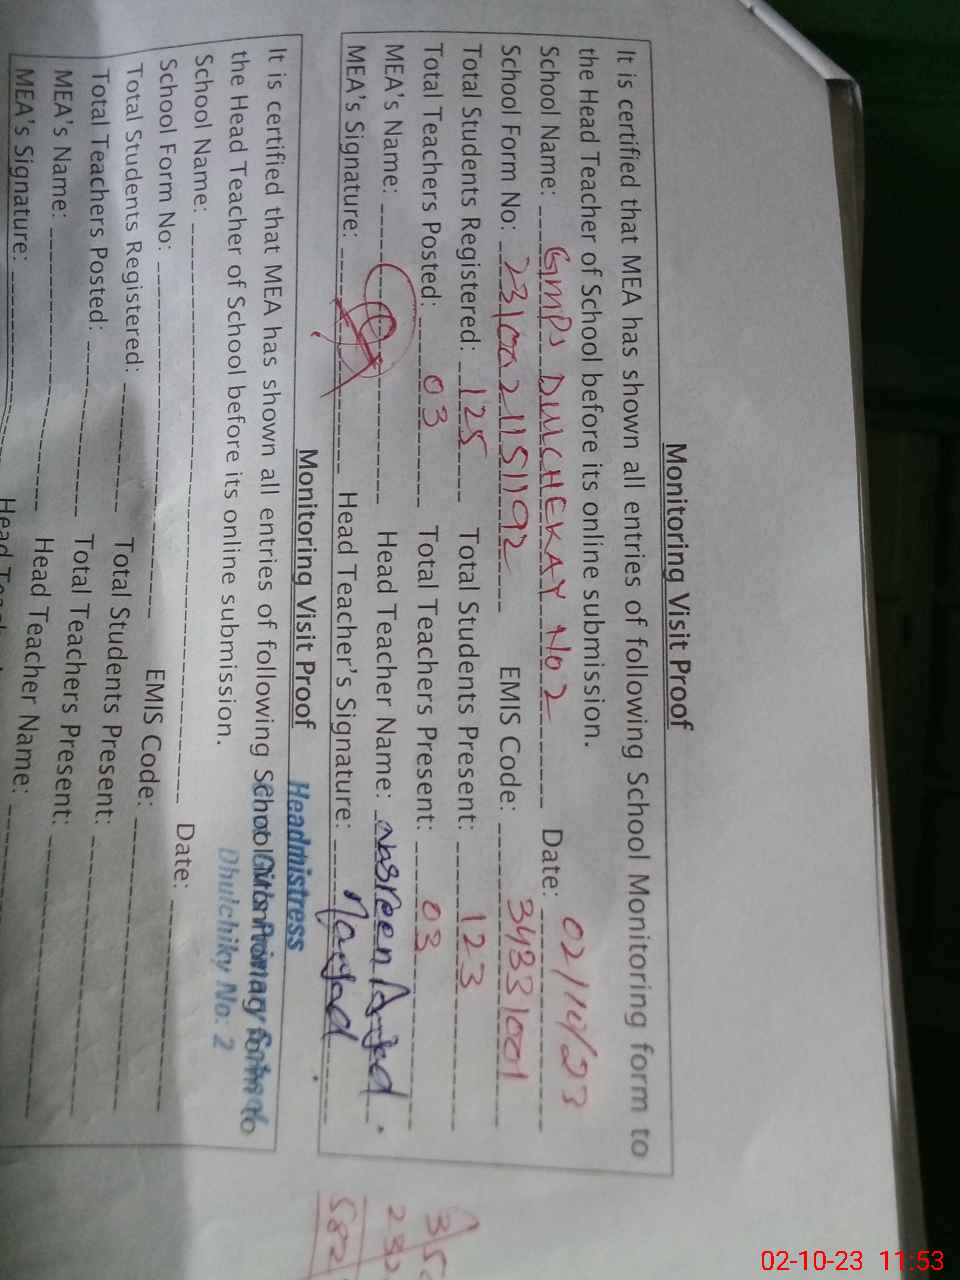 Monitoring Visit Proof
It is certified that MEA has shown all entries of following School Monitoring form to
the Head Teacher of School before its online submission.
School Name: GMPS DULCHEKAY No 2 Date: 02/10/23
School Form No: EMIS Code: 34331001
Total Students Registered: 125 Total Students Present: 123
Total Teachers Posted: 03 Total Teachers Present: 03
MEA's Name: Head Teacher Name: Nasreen Amjad
MEA's Signature: Head Teacher's Signature:
Monitoring Visit Proof
Headmistress
It is certified that MEA has shown all entries of following School
the Head Teacher of School before its online submission. Dhulchiky No: 2
School Name: Date:
School Form No: EMIS Code:
Total Students Registered: Total Students Present:
Total Teachers Posted: Total Teachers Present:
MEA's Name: Head Teacher Name:
MEA's Signature: Head
02-10-23 11:53